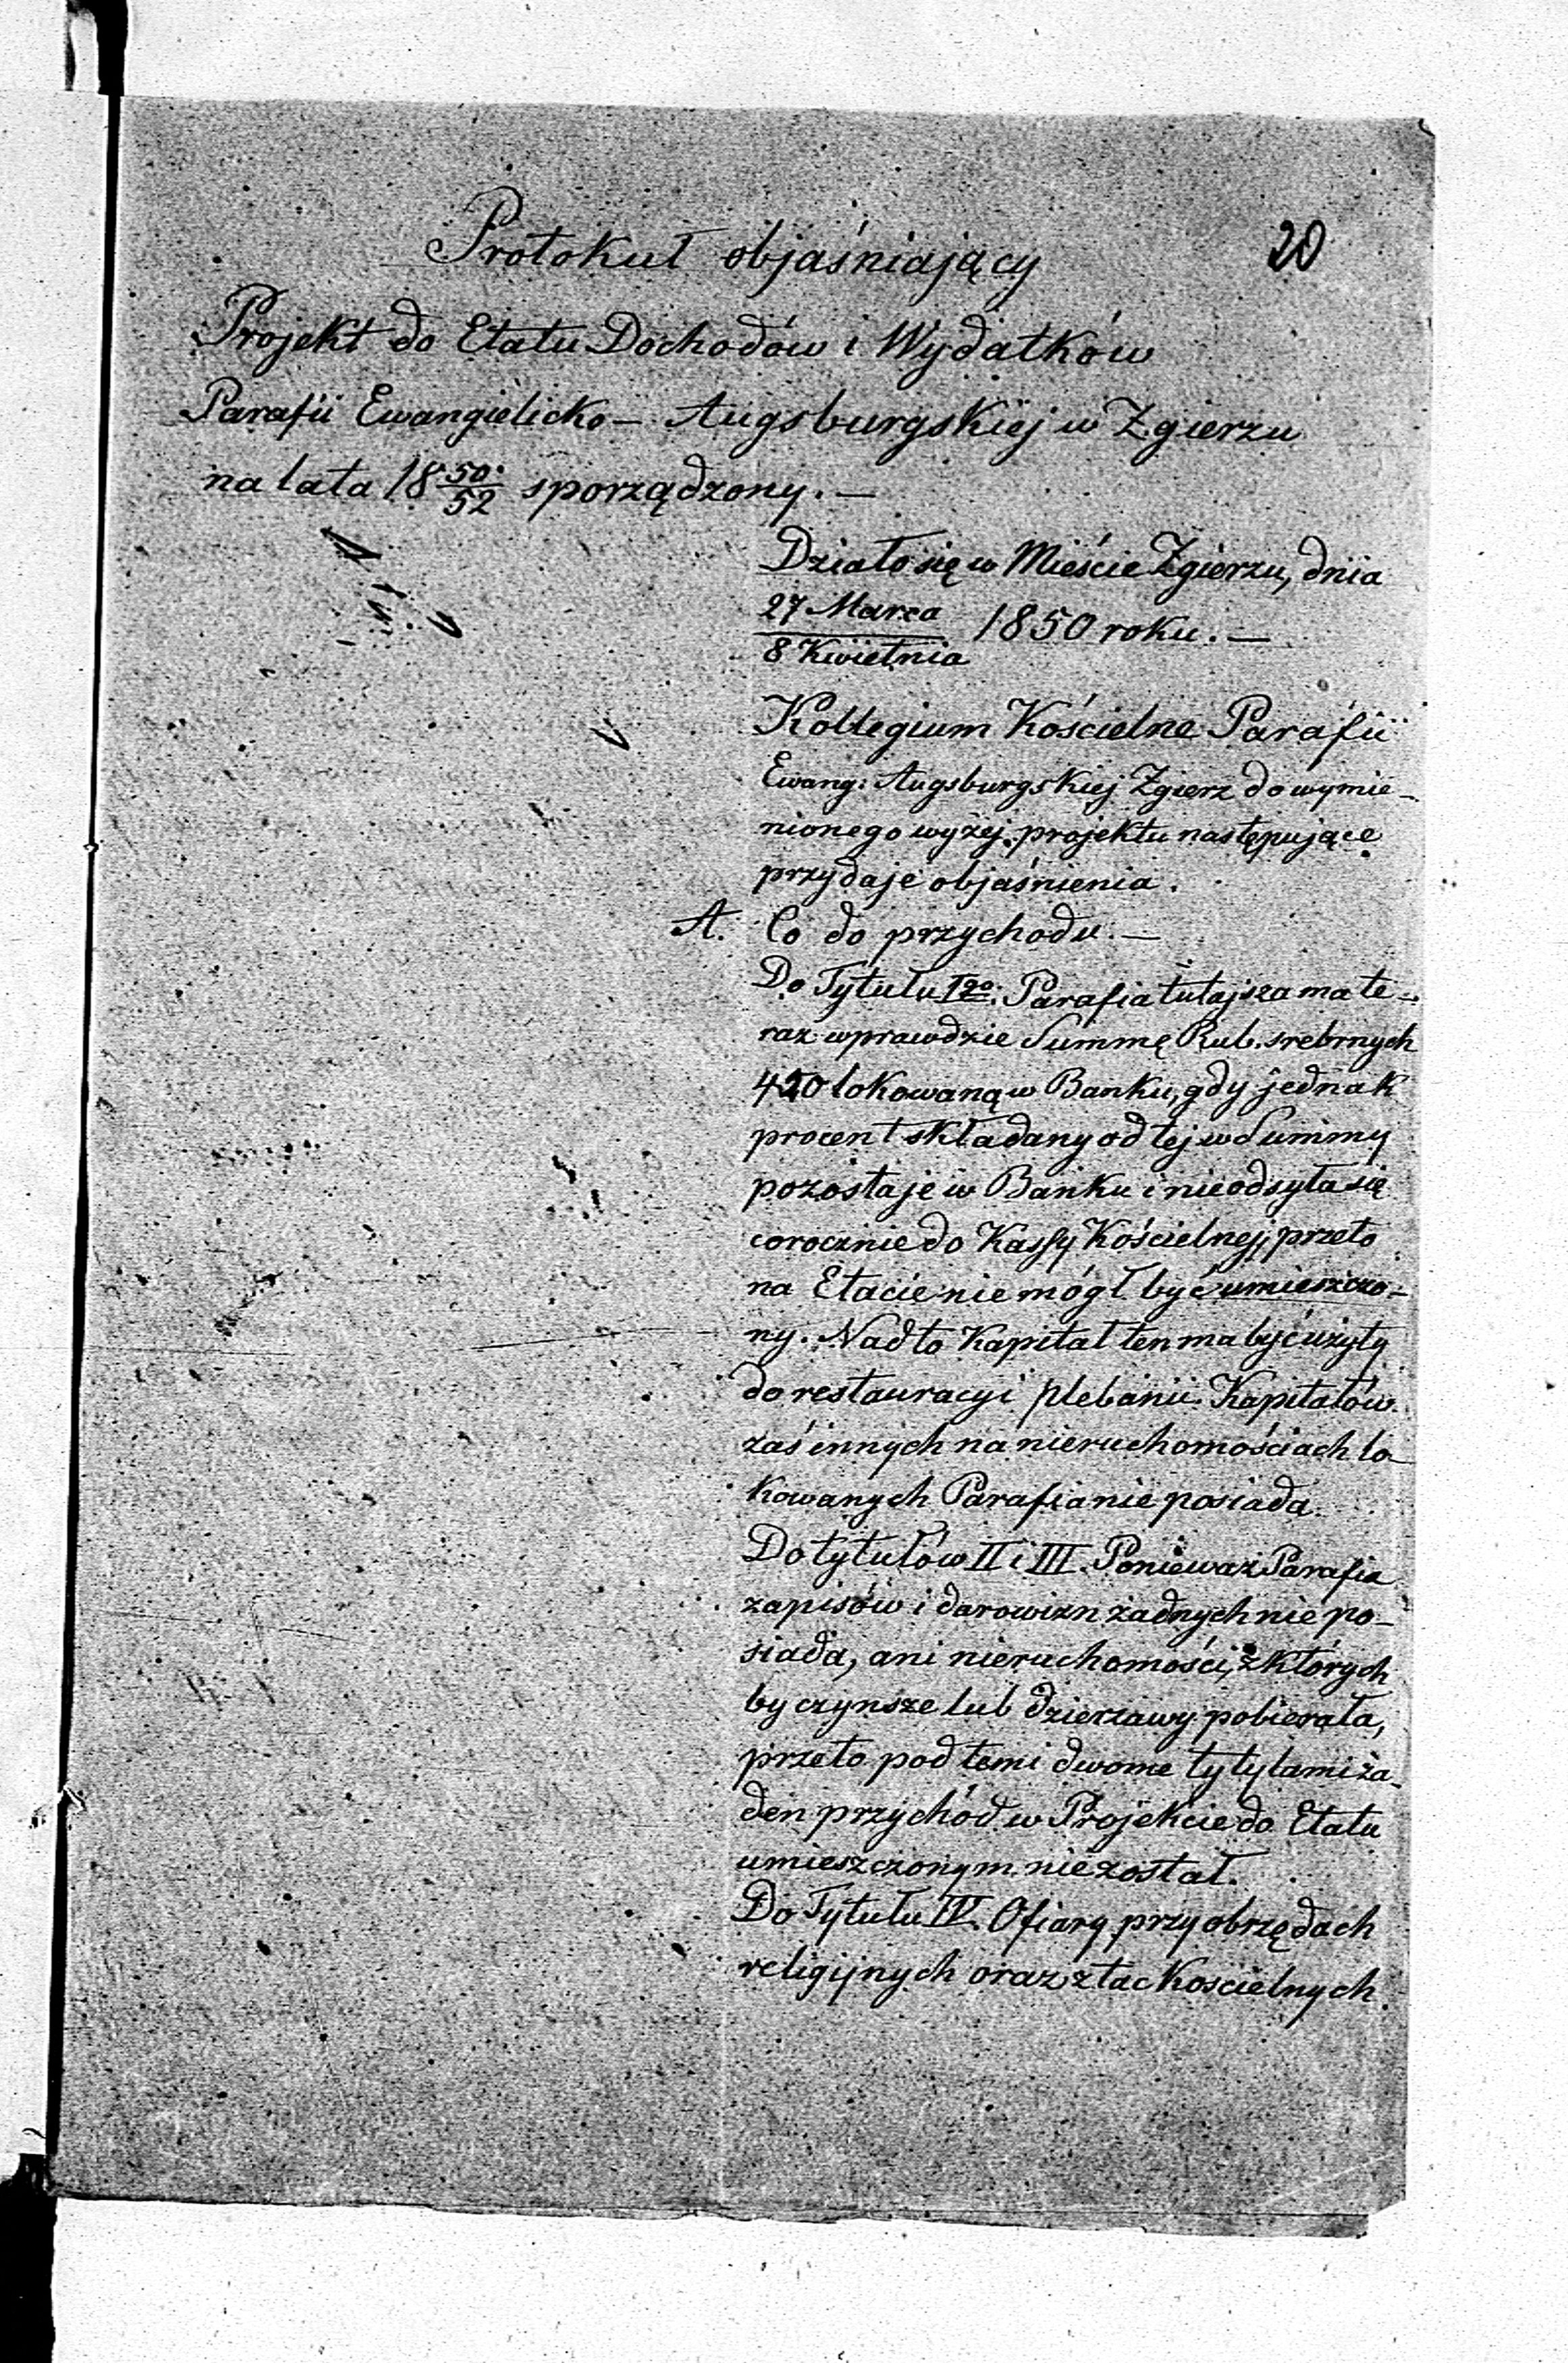 20
Protokuł objaśniający
Projekt do Etatu Dochodów i Wydatków
Parafii Ewangielicko - Augsburgskiej w Zgierzu
na lata 18 50/52 sporządzony. -
Działo się w Mieście Zgierzu, dnia
27 Marca / 8 Kwietnia 1850 roku. -
Kollegium Kościelne Parafii
Ewang: Augsburgskiej Zgierz do wymie-
nionego wyżej projektu następujące
przydaje objaśnienia.
A. Co do przychodu. -
Do Tytułu Igo. Parafia tutajsza ma te-
raz wprawdzie Summę Rub. srebrnych
450 lokowaną w Banku, gdy jednak
procent składany od tej w Summy
pozostaje w Banku i nie odsyła się
corocznie do Kassy Kościelnej, przeto
na Etacie nie mógł być umieszczo-
ny. Nadto Kapitał ten ma być użyty
do restauracyi plebanii. Kapitałów
zaś innych na nieruchomościach lo-
kowanych Parafia nie posiada.
Do tytułów II i III. Ponieważ Parafia
zapisów i darowizn żadnych nie po-
siada, ani nieruchomości, z których
by czynsze lub dzierzawy pobierała,
przeto pod temi dwoma tytyłami ża-
den przychód w Projekcie do Etatu
umieszczonym nie został.
Do Tytułu IV. Ofiary przy obrzędach
religijnych oraz z tac Koscielnych